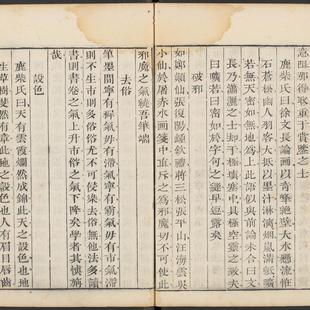 鹿柴氏曰徐文長論画以奇峰絶壁大水懸流怪
石蒼松幽人羽客大抵以墨汁淋漓烟嵐滿紙曠
若無天密如無地爲上此語似與前論未合曰文
長乃瀟灑之士却于極填塞中具極空靈之致夫
曰曠若曰密如於字句之縫早逗露矣
破邪
如鄭顛仙張復陽鍾欽禮蔣三松張平山汪海雲吳
小仙於屠赤水画箋中直斥之爲邪魔切不可以
邪魔之氣繞吾筆端
去俗
筆墨間寧有穉氣毋有滯氣寧有霸氣毋有市氣滯
則不生市則多俗俗尤不可侵染去俗無他法多讀
書則書卷之氣上升市俗之氣下降矣學者其慎旃
哉
設色
鹿柴氏曰天有雲霞爛然成錦此天之設色也地
生草樹斐然有章此地之設色也人有眉目唇齒